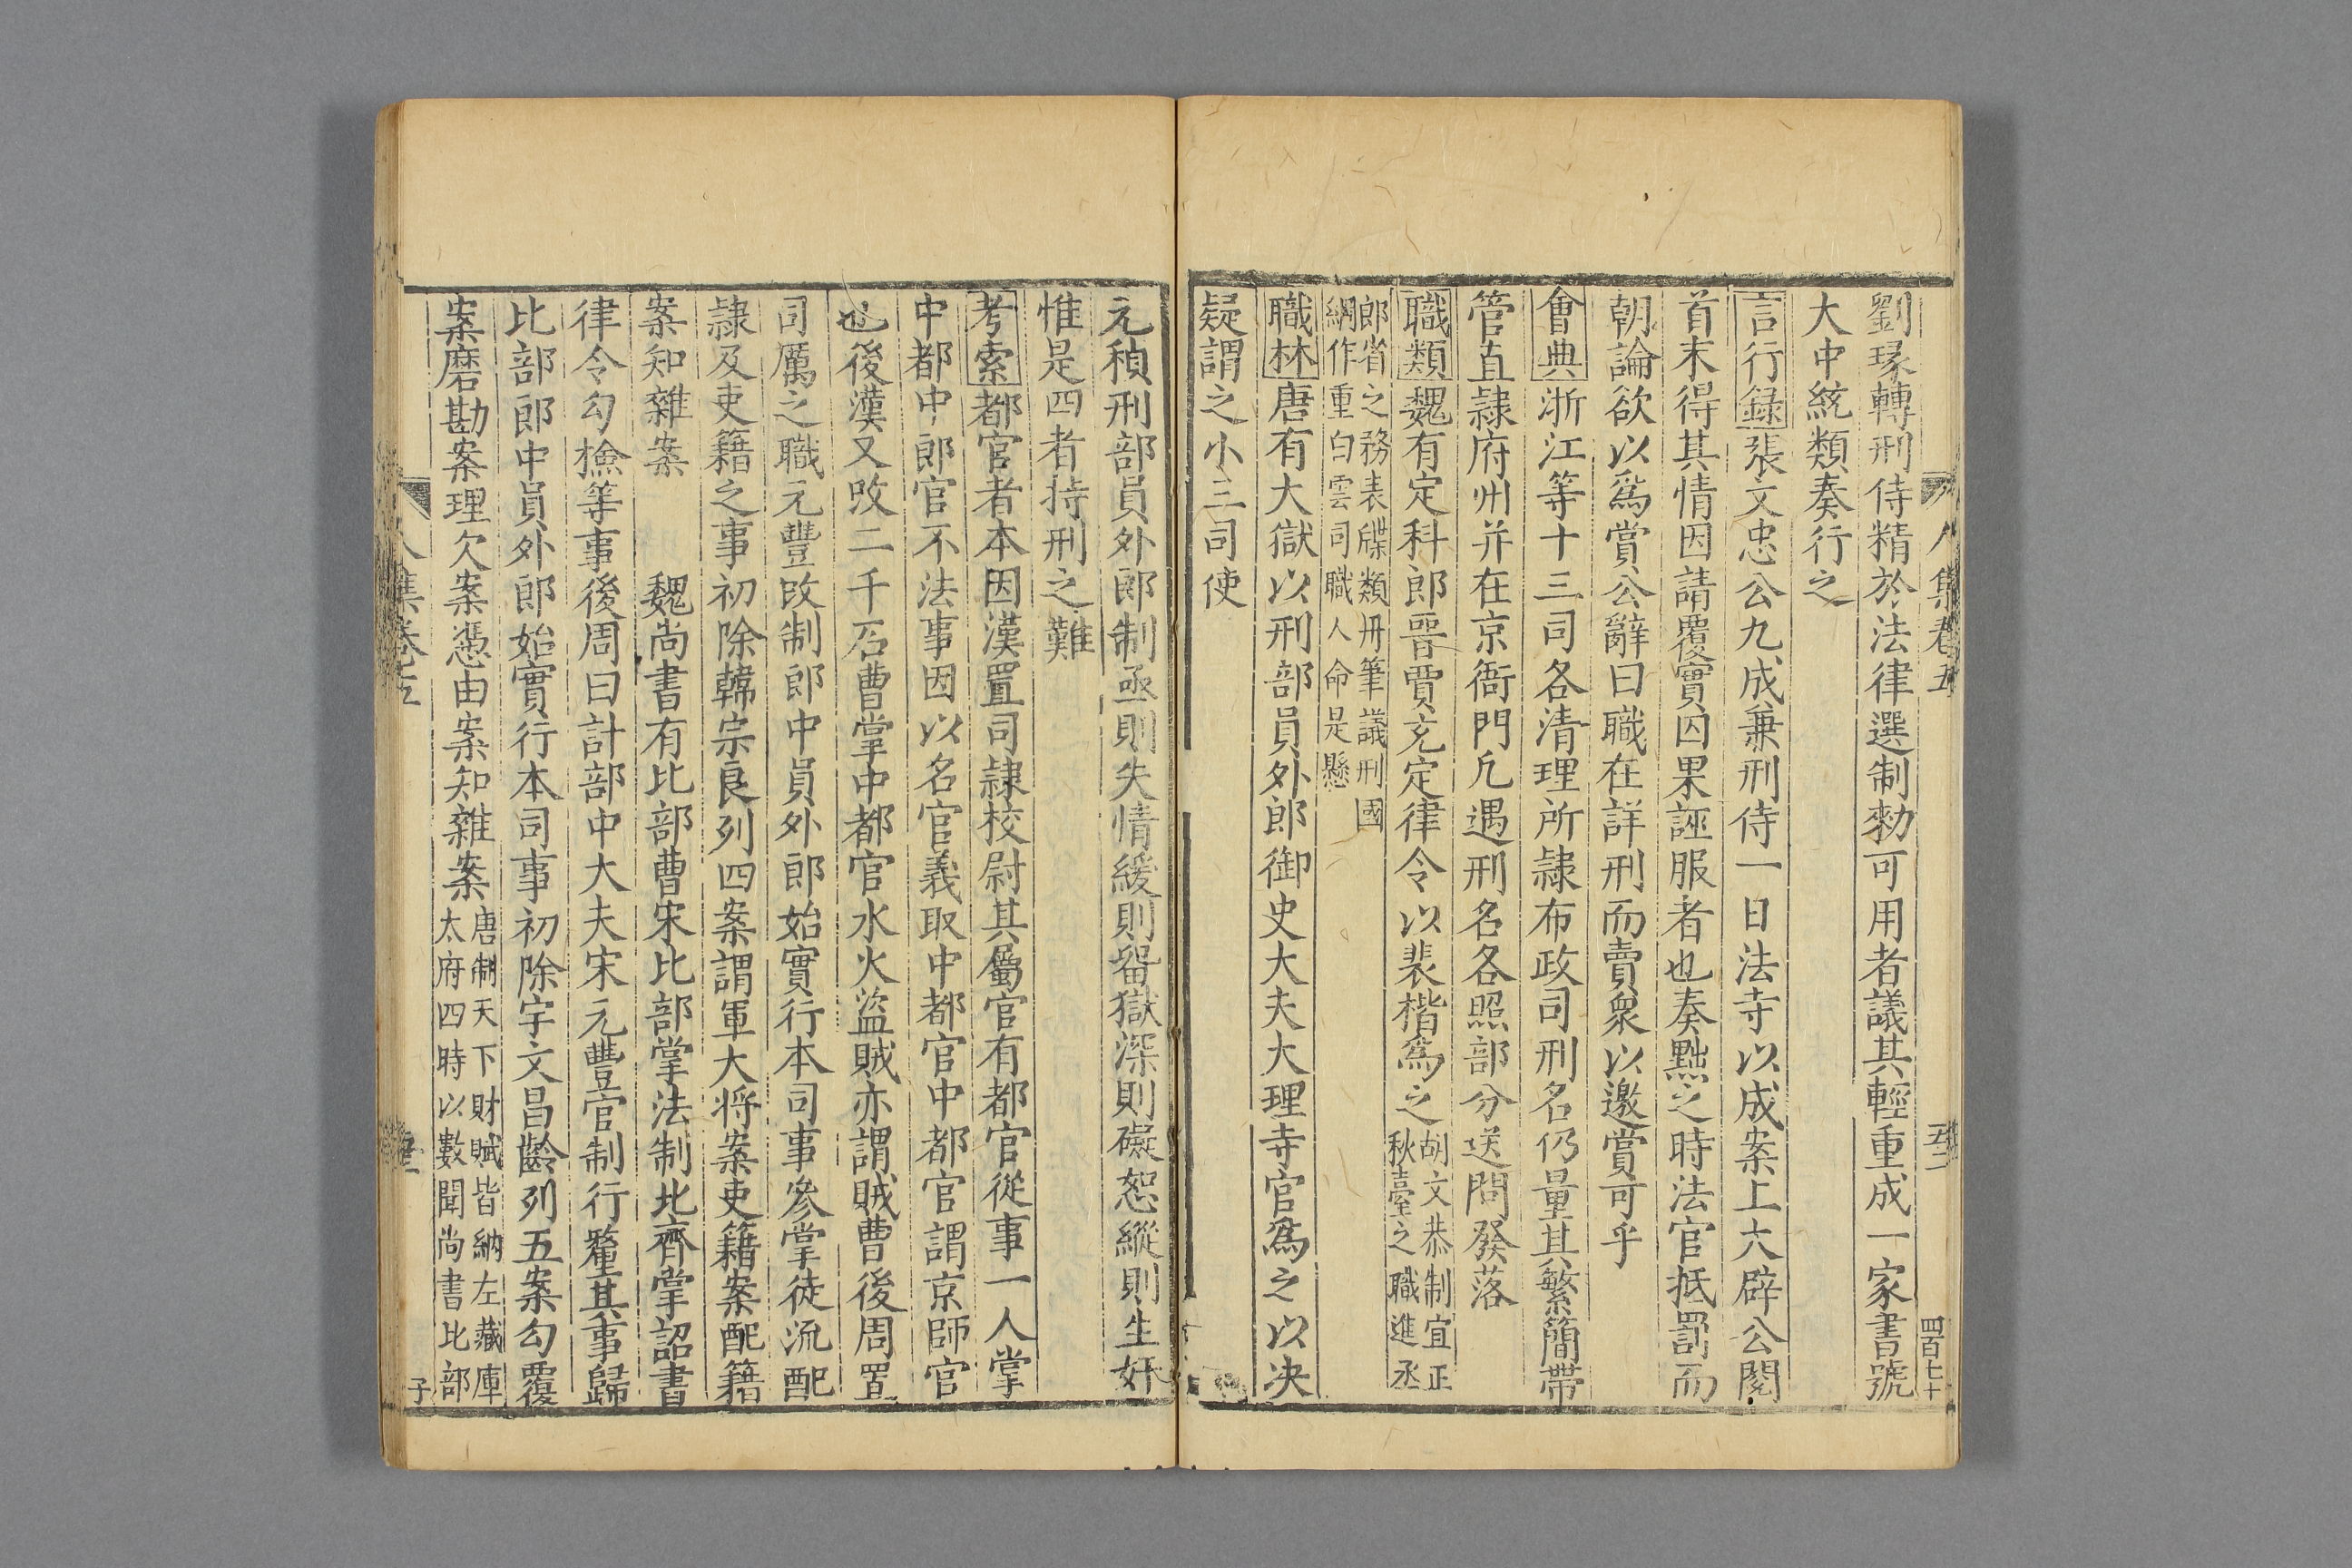 劉瑑轉刑侍精於法律選制勑可用者議其輕重成一家書號
大中統類奏行之
言行録張文忠公九成兼刑侍一日法寺以成案上大辟公閱
首末得其情因請覆實囚果誣服者也奏黜之時法官抵罰而
朝論欲以爲賞公辭曰職在詳刑而賣衆以邀賞可乎
會典浙江等十三司各清理所隷布政司刑名仍量其繁簡帶
管直隷府州并在京衙門凢遇刑名各照部分送問發落
職類魏有定科郎晋賈充定律令以裴楷爲之胡文恭制宜正
秋臺之職進丞
郎省之務表牒類冊筆議刑國
綱作重白雲司職人命是懸
職林唐有大獄以刑部員外郎御史大夫大理寺官爲之以决
疑謂之小三司使
元稹刑部員外郎制亟則失情緩則留獄深則礙恕縱則生奸
惟是四者持刑之難
考索都官者本因漢置司隷校尉其屬官有都官從事一人掌
中都中郎官不法事因以名官義取中都官中都官謂京師官
也後漢又改二千石曹掌中都官水火盜賊亦謂賊曹後周置
司厲之職元豐改制郎中員外郎始實行本司事叅掌徒流配
隷及吏籍之事初除韓宗良列四案謂軍大将案吏籍案配籍
案知雜案 魏尚書有比部曹宋比部掌法制北齊掌詔書
律令勾檢等事後周曰計部中大夫宋元豐官制行釐其事歸
比部郎中員外郎始實行本司事初除宇文昌齡列五案勾覆
案磨勘案理欠案憑由案知雜案唐制天下財賦皆納左藏庫
太府四時以數聞尚書比部
八集卷五
四百七十
八集卷五
子